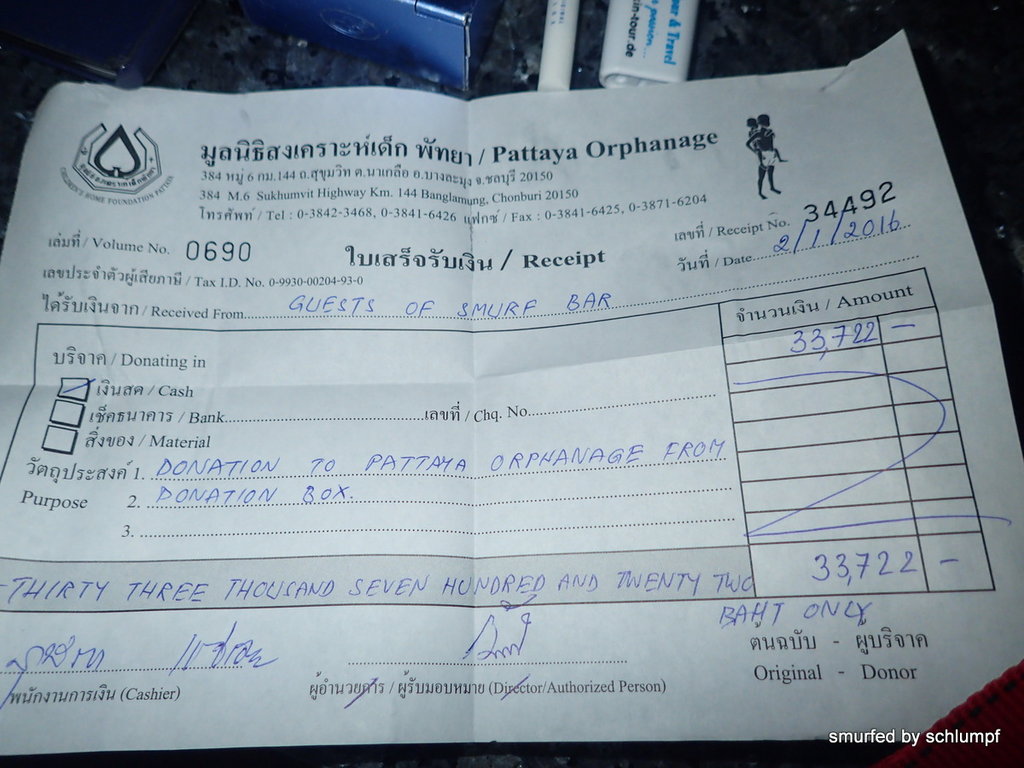 per & Travel
s passion...
in-tour.de
มูลนิธิสงเคราะห์เด็ก พัทยา / Pattaya Orphanage
384 หมู่ 6 กม.144 ถ.สุขุมวิท ต.นาเกลือ อ.บางละมุง จ.ชลบุรี 20150
384 M.6 Sukhumvit Highway Km. 144 Banglamung, Chonburi 20150
โทรศัพท์ / Tel : 0-3842-3468, 0-3841-6426 แฟกซ์ / Fax : 0-3841-6425, 0-3871-6204
CHILDREN'S HOME FOUNDATION PATTAYA
เล่มที่ / Volume No. 0690
ใบเสร็จรับเงิน / Receipt
เลขที่ / Receipt No. 34492
วันที่ / Date 2/1/2016
เลขประจำตัวผู้เสียภาษี / Tax I.D. No. 0-9930-00204-93-0
ได้รับเงินจาก / Received From GUESTS OF SMURF BAR
จำนวนเงิน / Amount
33,722 –
บริจาค / Donating in
เงินสด / Cash
เช็คธนาคาร / Bank เลขที่ / Chq. No.
สิ่งของ / Material
วัตถุประสงค์ 1. DONATION TO PATTAYA ORPHANAGE FROM
Purpose 2. DONATION BOX.
3.
-THIRTY THREE THOUSAND SEVEN HUNDRED AND TWENTY TWO 33,722 –
BAHT ONLY
พนักงานการเงิน (Cashier)
ผู้อำนวยการ / ผู้รับมอบหมาย (Director/Authorized Person)
ต้นฉบับ - ผู้บริจาค
Original - Donor
smurfed by schlumpf